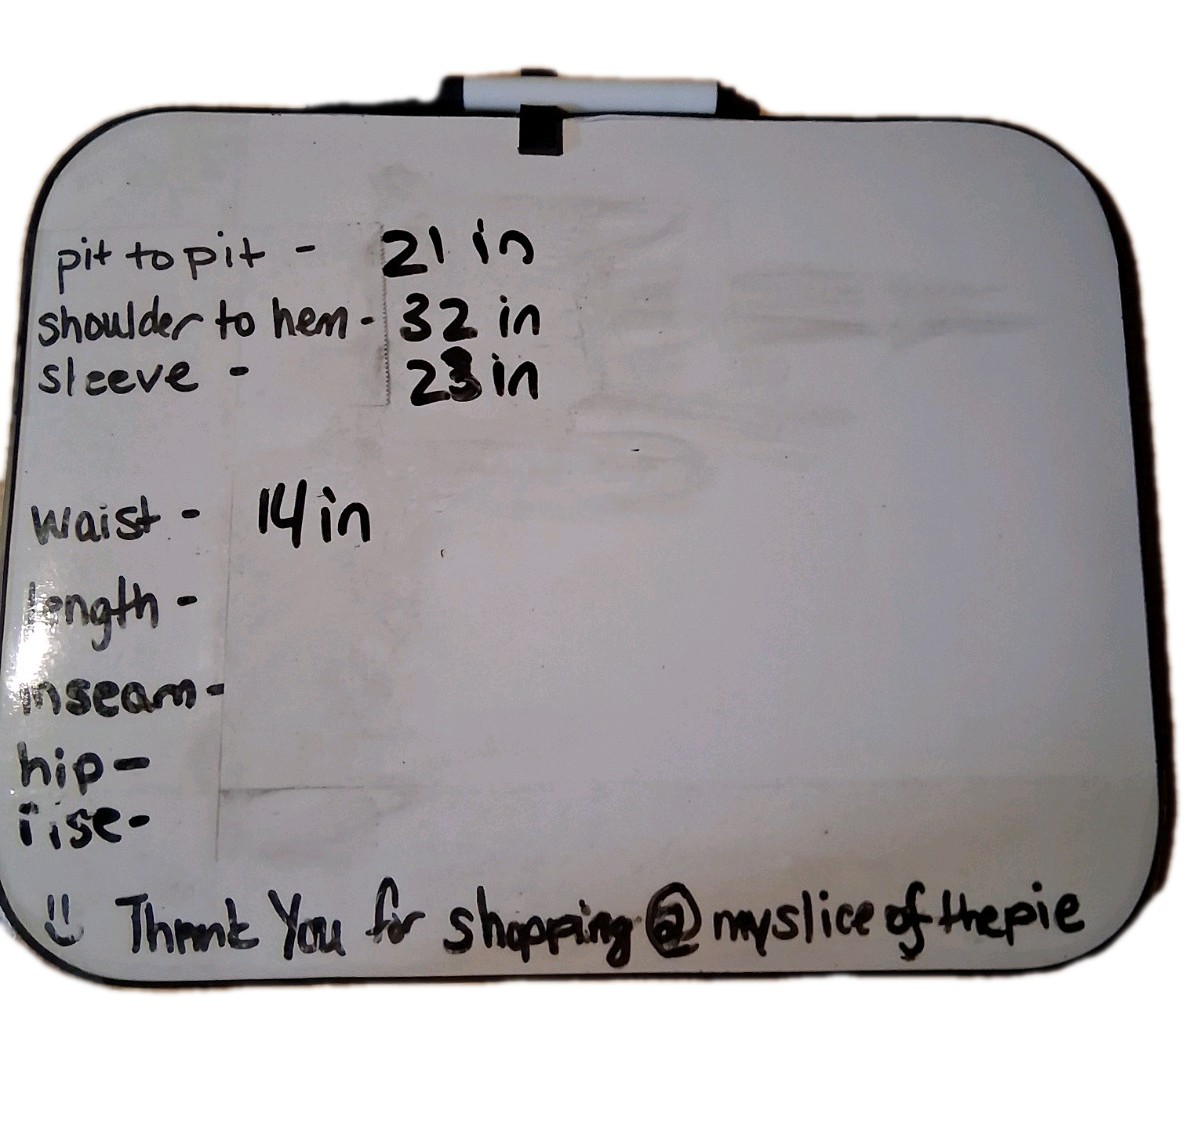 pit to pit - 21 in
shoulder to hem - 32 in
sleeve - 23 in
waist - 14 in
length -
inseam -
hip -
rise -
Thank You for shopping @ myslice of the pie